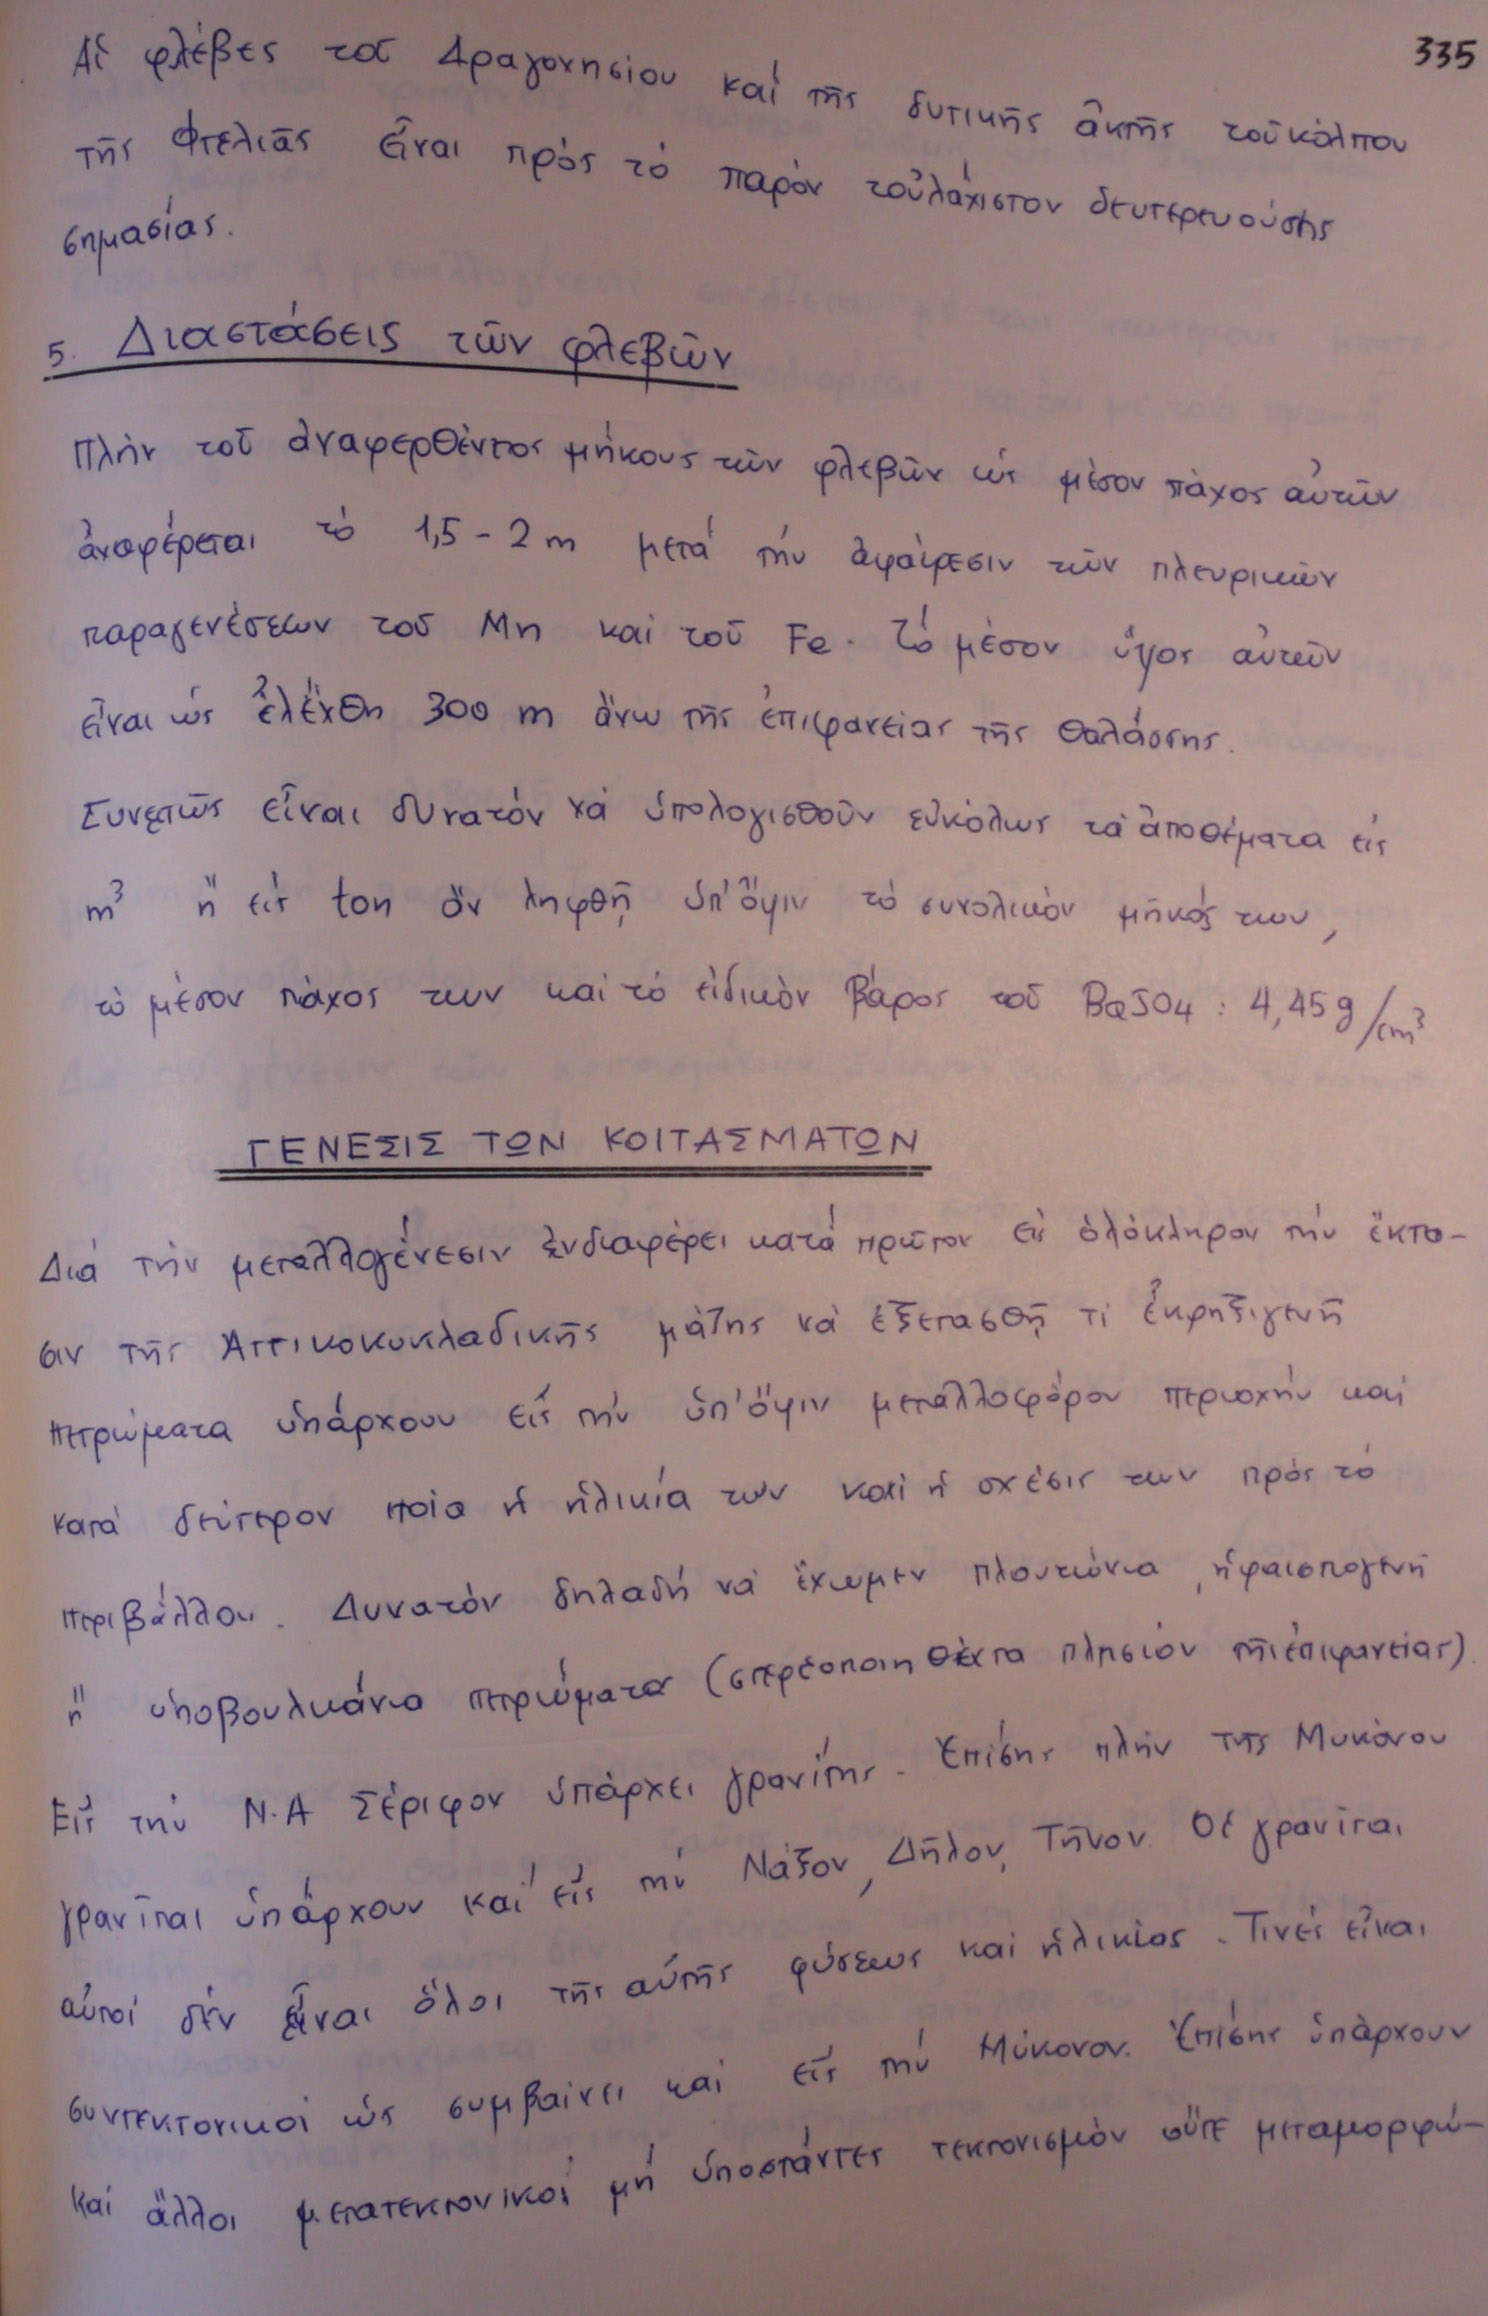 335
Αἱ φλέβες τοῦ Δραγονησίου καί τῆς δυτικῆς ἀκτῆς τοῦ κόλπου
τῆς Φτελιᾶς εἶναι πρός τό παρόν τοὐλάχιστον δευτερευούσης
σημασίας.
5. Διαστάσεις τῶν φλεβῶν
Πλήν τοῦ ἀναφερθέντος μήκους τῶν φλεβῶν ὡς μέσον πάχος αὐτῶν
ἀναφέρεται τό 1,5 - 2 m μετά τήν ἀφαίρεσιν τῶν πλευρικῶν
παραγενέσεων τοῦ Mn καί τοῦ Fe. Τό μέσον ὕψος αὐτῶν
εἶναι ὡς ἐλέχθη 300 m ἄνω τῆς ἐπιφανείας τῆς θαλάσσης.
Συνεπῶς εἶναι δυνατόν νά ὑπολογισθοῦν εὐκόλως τά ἀποθέματα εἰς
m³ ἤ εἰς ton ἄν ληφθῇ ὑπ' ὄψιν τό συνολικόν μῆκός των,
τό μέσον πάχος των καί τό εἰδικόν βάρος τοῦ BaSO4 : 4,45 g/cm³
ΓΕΝΕΣΙΣ ΤΩΝ ΚΟΙΤΑΣΜΑΤΩΝ
Διά τήν μεταλλογένεσιν ἐνδιαφέρει κατά πρῶτον εἰς ὁλόκληρον τήν ἔκτα-
σιν τῆς Ἀττικοκυκλαδικῆς μάζης νά ἐξετασθῇ τί ἐκρηξιγενῆ
πετρώματα ὑπάρχουν εἰς τήν ὑπ' ὄψιν μεταλλοφόρον περιοχήν καί
κατά δεύτερον ποία ἡ ἡλικία των καί ἡ σχέσις των πρός τό
περιβάλλον. Δυνατόν δηλαδή νά ἔχωμεν πλουτώνια, ἡφαιστογενῆ
ἤ ὑποβουλκάνια πετρώματα (στερεοποιηθέντα πλησίον τῆς ἐπιφανείας).
Εἰς τήν Ν.Α Σέριφον ὑπάρχει γρανίτης. Ἐπίσης πλήν τῆς Μυκόνου
γρανῖται ὑπάρχουν καί εἰς τήν Νάξον, Δῆλον, Τῆνον. Οἱ γρανῖται
αὐτοί δέν εἶναι ὅλοι τῆς αὐτῆς φύσεως καί ἡλικίας. Τινές εἶναι
συντεκτονικοί ὡς συμβαίνει καί εἰς τήν Μύκονον. Ἐπίσης ὑπάρχουν
καί ἄλλοι μετατεκτονικοί μή ὑποστάντες τεκτονισμόν οὔτε μεταμορφώ-